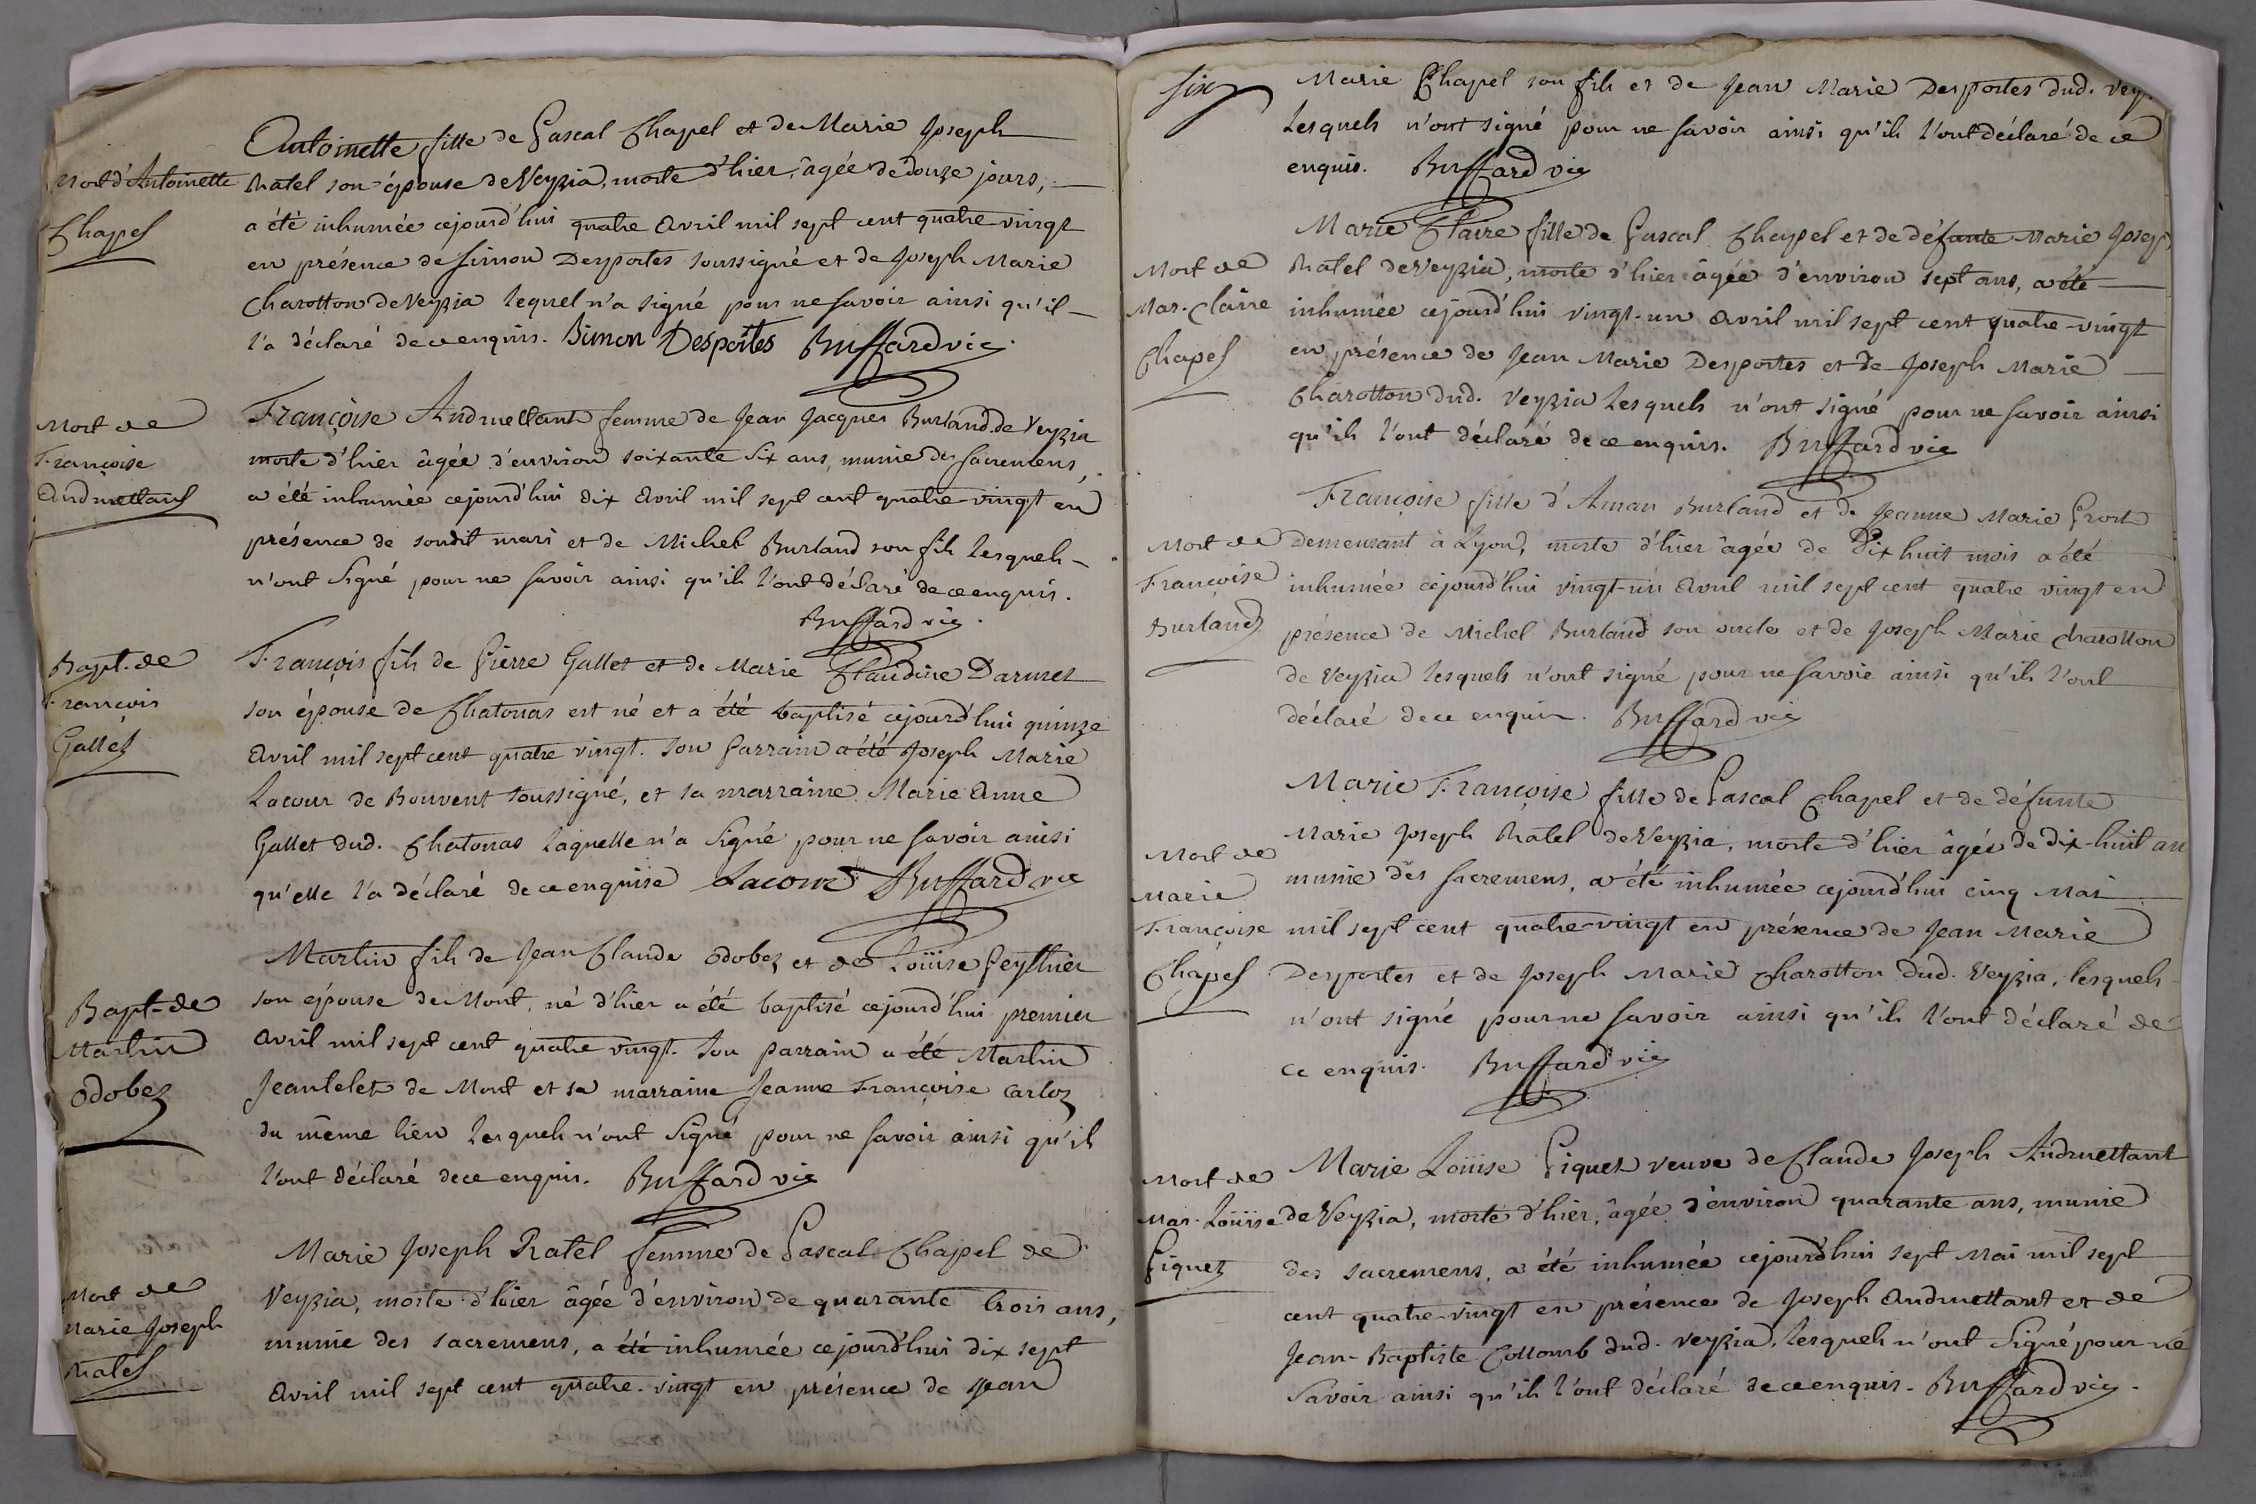 Mort d'Antoinette
Chapel
Antoinette fille de Pascal Chapel et de Marie Joseph
Ratel son épouse de Veyzia, morte d'hier, âgée de douze jours,
a été inhumée cejourd'hui quatre Avril mil sept cent quatre vingt
en présence de Simon Desportes soussigné et de Joseph Marie
Charotton de Veyzia lequel n'a signé pour ne savoir ainsi qu'il
l'a déclaré de ce enquis. Simon Desportes Buffard vic.
Mort de
Françoise
Andruettant
Françoise Andruettant femme de Jean Jacques Burland de Veyzia
morte d'hier âgée d'environ soixante six ans, munie des sacremens,
a été inhumée cejourd'hui dix Avril mil sept cent quatre-vingt en
présence de soudit mari et de Michel Burland son fils lesquels
n'ont signé pour ne savoir ainsi qu'ils l'ont déclaré de ce enquis.
Buffard vic.
Bapt. de
François
Gallet
François fils de Pierre Gallet et de Marie Claudine Darmet
son épouse de Chatonas est né et a été baptisé cejourd'hui quinze
Avril mil sept cent quatre vingt. son Parrain a été Joseph Marie
Lacour de Bouvent soussigné, et sa marraine Marie Anne
Gallet dud. Chatonas laquelle n'a signé pour ne savoir ainsi
qu'elle l'a déclaré de ce enquise Lacour Buffard vic
Bapt. de
Martin
Odobez
Martin fils de Jean Claude Odobez et de Loüise Peythier
son épouse de Mont, né d'hier a été baptisé cejourd'hui premier
Avril mil sept cent quatre vingt. Son parrain a été Martin
Jeantelet de Mont et sa marraine Jeanne Françoise Carloz
du même lieu lesquels n'ont signé pour ne savoir ainsi qu'ils
l'ont déclaré de ce enquis. Buffard vic
Mort de
Marie Joseph
Ratel
Marie Joseph Ratel femme de Pascal Chapel de
Veyzia, morte d'hier âgée d'environ de quarante trois ans,
munie des sacremens, a été inhumée cejourd'hui dix sept
Avril mil sept cent quatre-vingt en présence de Jean
six
Marie Chapel son fils et de Jean Marie Desportes dud. Vey.
Lesquels n'ont signé pour ne savoir ainsi qu'ils l'ont déclaré de ce
enquis. Buffard vic
Mort de
Mar. Claire
Chapel
Marie Claire fille de Pascal Chapel et de défunte Marie Joseph
Ratel de Veyzia, morte d'hier âgée d'environ sept ans, a été
inhumée cejourd'hui vingt-un Avril mil sept cent quatre-vingt
en présence de Jean Marie Desportes et de Joseph Marie
Charotton dud. Veyzia lesquels n'ont signé pour ne savoir ainsi
qu'ils l'ont déclaré de ce enquis. Buffard vic
Mort de
Françoise
Burland
Françoise fille d'Aman Burland et de Jeanne Marie Prost
Demeurant à Lyon, morte d'hier âgée de Dix huit mois a été
inhumée cejourd'hui vingt-un Avril mil sept cent quatre vingt en
présence de Michel Burland son oncle et de Joseph Marie Charotton
de Veyzia lesquels n'ont signé pour ne savoir ainsi qu'ils l'ont
déclaré de ce enquis. Buffard vic
Mort de
Marie
Françoise
Chapel
Marie Françoise fille de Pascal Chapel et de défunte
Marie Joseph Ratel de Veyzia, morte d'hier âgée de dix-huit an
munie des sacremens, a été inhumée cejourd'hui cinq Mai
mil sept cent quatre-vingt en présence de Jean Marie
Desportes et de Joseph Marie Charotton dud. Veyzia, lesquels
n'ont signé pour ne savoir ainsi qu'ils l'ont déclaré de
ce enquis. Buffard vic
Mort de
Mar. Loüise
Piquet
Marie Loüise Piquet veuve de Claude Joseph Andruettant
de Veyzia, morte d'hier, âgée d'environ quarante ans, munie
des sacremens, a été inhumée cejourd'hui sept Mai mil sept
cent quatre-vingt en présence de Joseph Andruettant et de
Jean-Baptiste Collomb dud. Veyzia, lesquels n'ont signé pour ne
savoir ainsi qu'ils l'ont déclaré de ce enquis. Buffard vic.